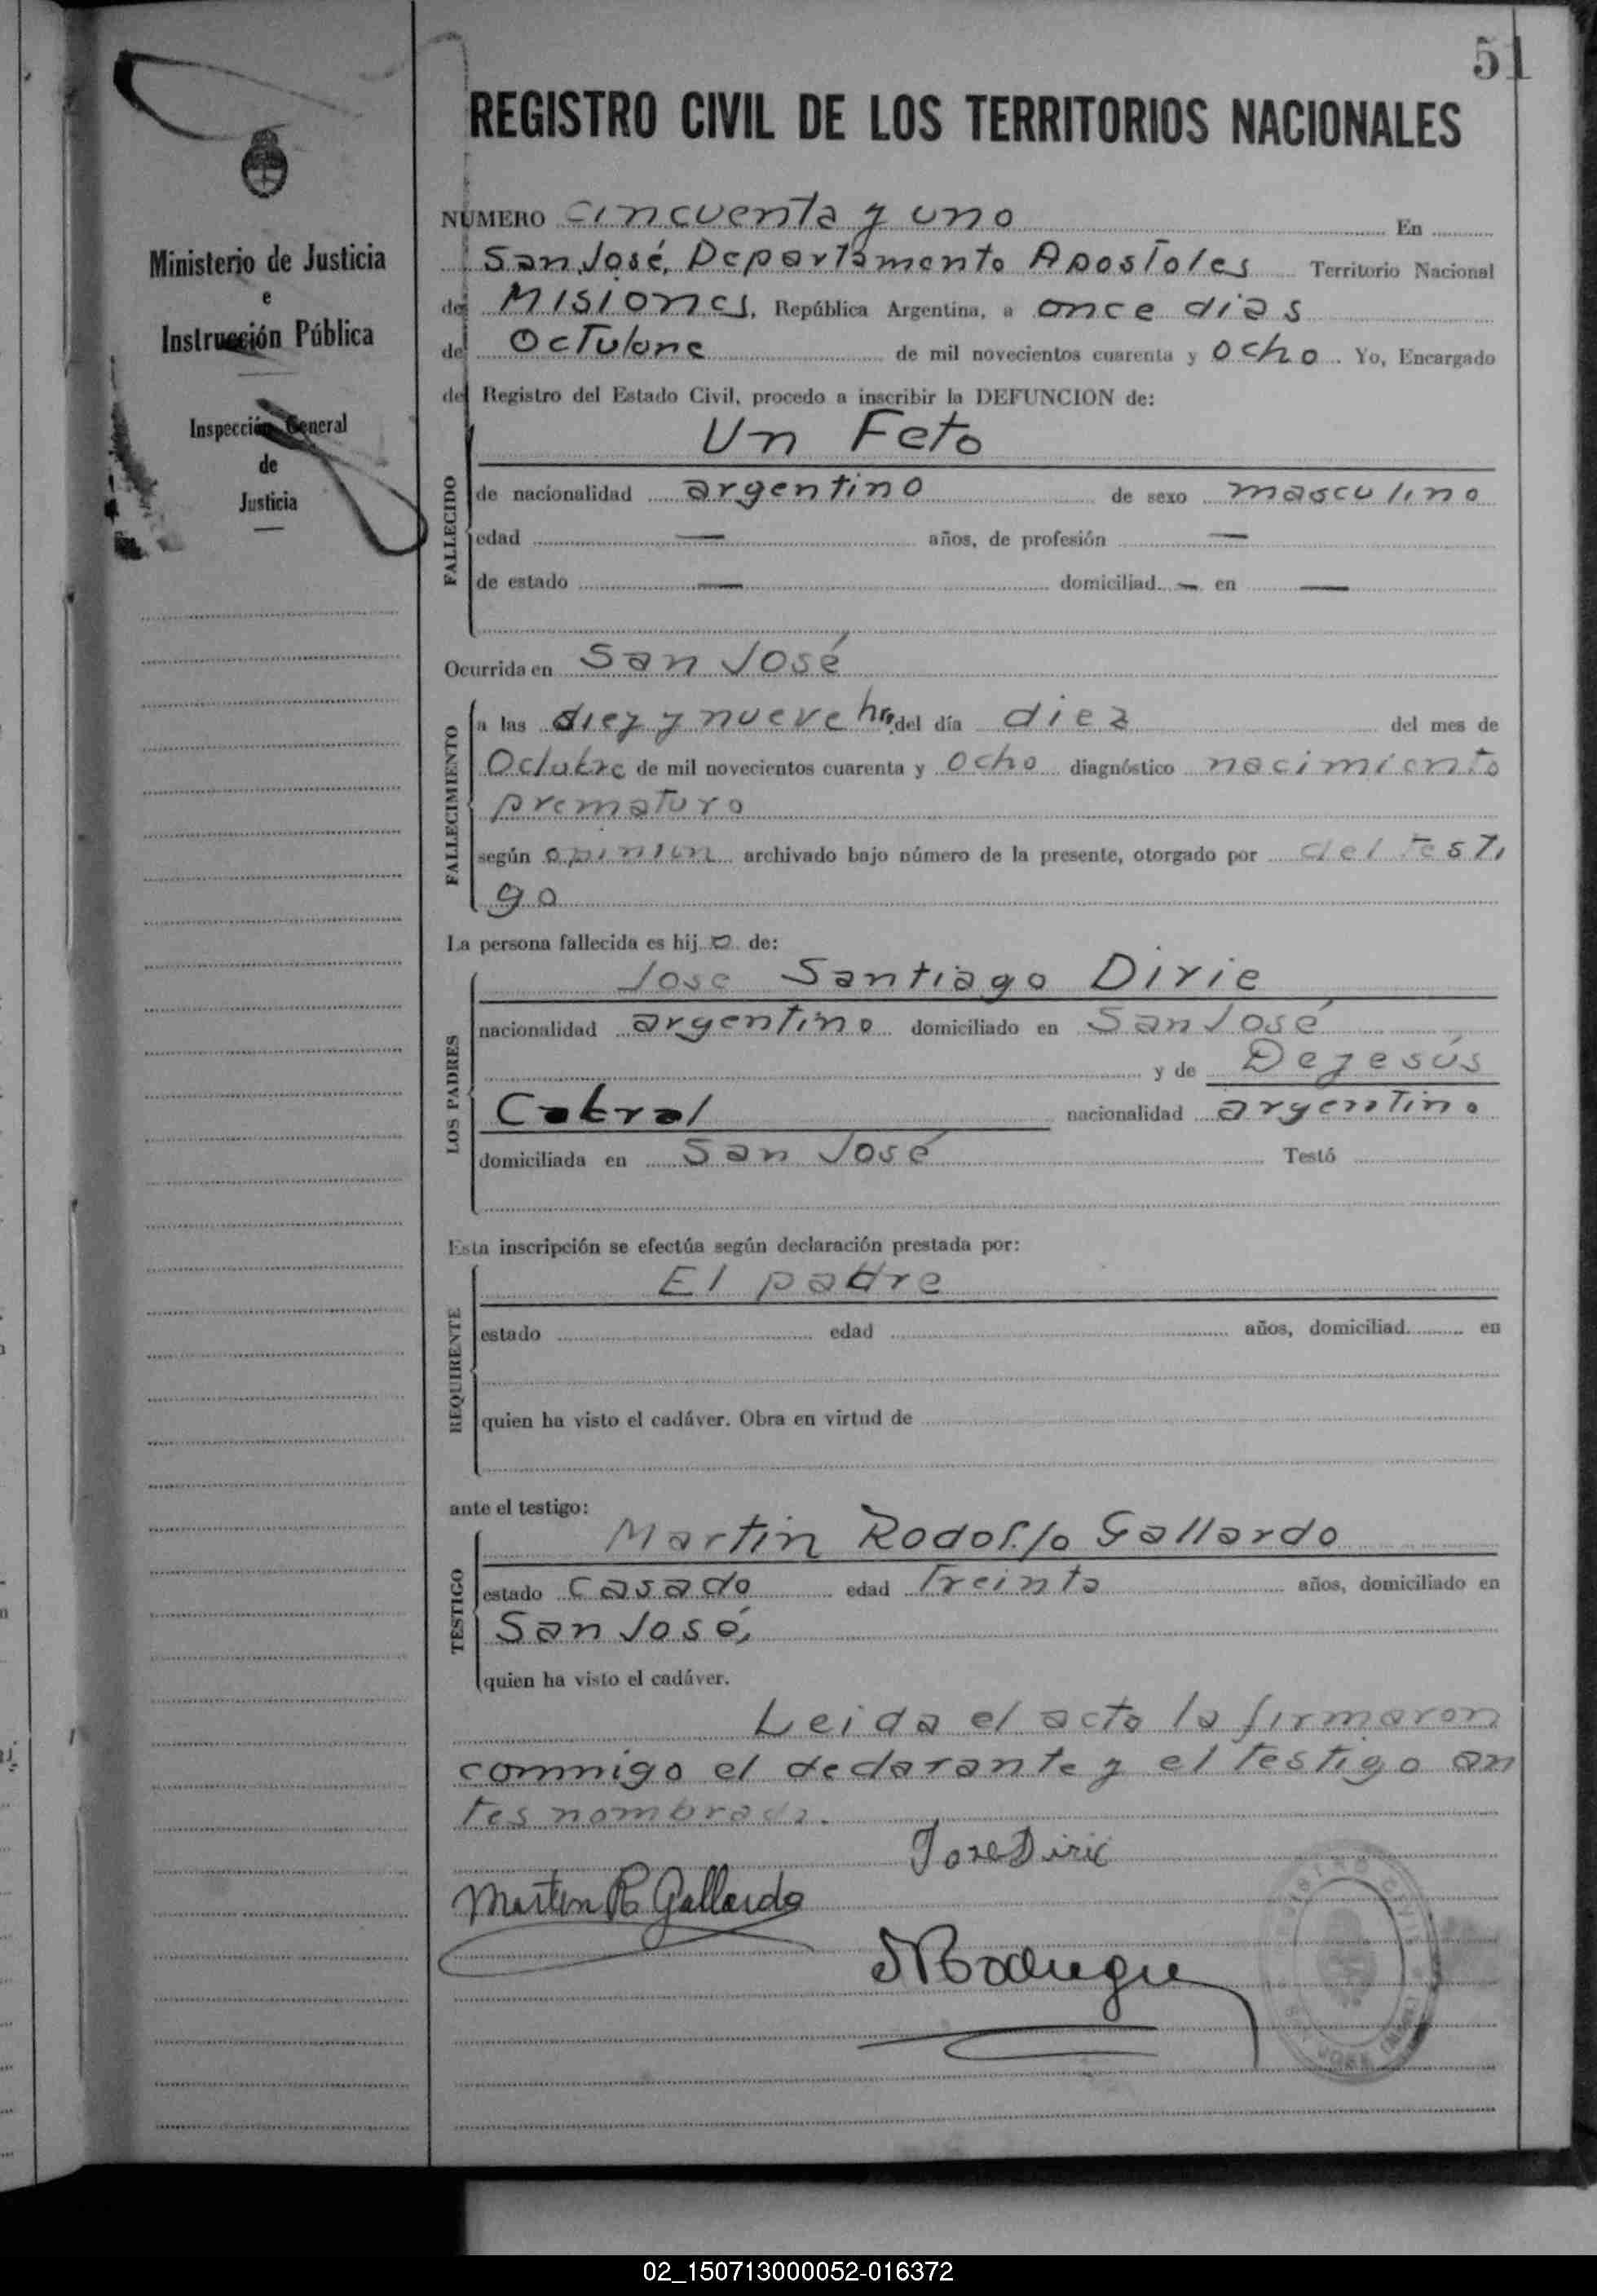 51
REGISTRO CIVIL DE LOS TERRITORIOS NACIONALES
Ministerio de Justicia
e
Instrucción Pública
Inspección General
de
Justicia
NÚMERO cincuenta y uno En
San José, Departamento Apostoles Territorio Nacional
de Misiones, República Argentina, a once dias
de Octubre de mil novecientos cuarenta y ocho Yo, Encargado
del Registro del Estado Civil, procedo a inscribir la DEFUNCION de:
FALLECIDO
Un Feto
de nacionalidad argentino de sexo masculino
edad — años, de profesión —
de estado — domiciliad — en —
Ocurrida en San José
FALLECIMIENTO
a las diez y nueve hrs. del día diez del mes de
Octubre de mil novecientos cuarenta y ocho diagnóstico nacimiento
prematuro
según opinion archivado bajo número de la presente, otorgado por del testi
go
La persona fallecida es hijo de:
LOS PADRES
Jose Santiago Dirie
nacionalidad argentino domiciliado en San José
y de Dejesús
Cabral nacionalidad argentino
domiciliada en San José Testó
Esta inscripción se efectúa según declaración prestada por:
REQUIRENTE
El padre
estado edad años, domiciliad en
quien ha visto el cadáver. Obra en virtud de
ante el testigo:
TESTIGO
Martin Rodolfo Gallardo
estado casado edad Treinta años, domiciliado en
San José,
quien ha visto el cadáver.
Leida el acta la firmaron
conmigo el declarante y el testigo an
tes nombrado.
Jose Dirie
Martin R Gallardo
02_150713000052-016372